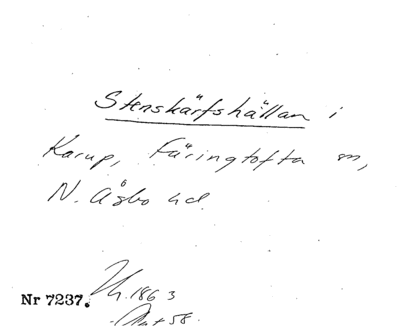 Stenskärfshällan i
Karup, Färingtofta sn,
N. Åsbo hd
Nr 7237. 1863
58.